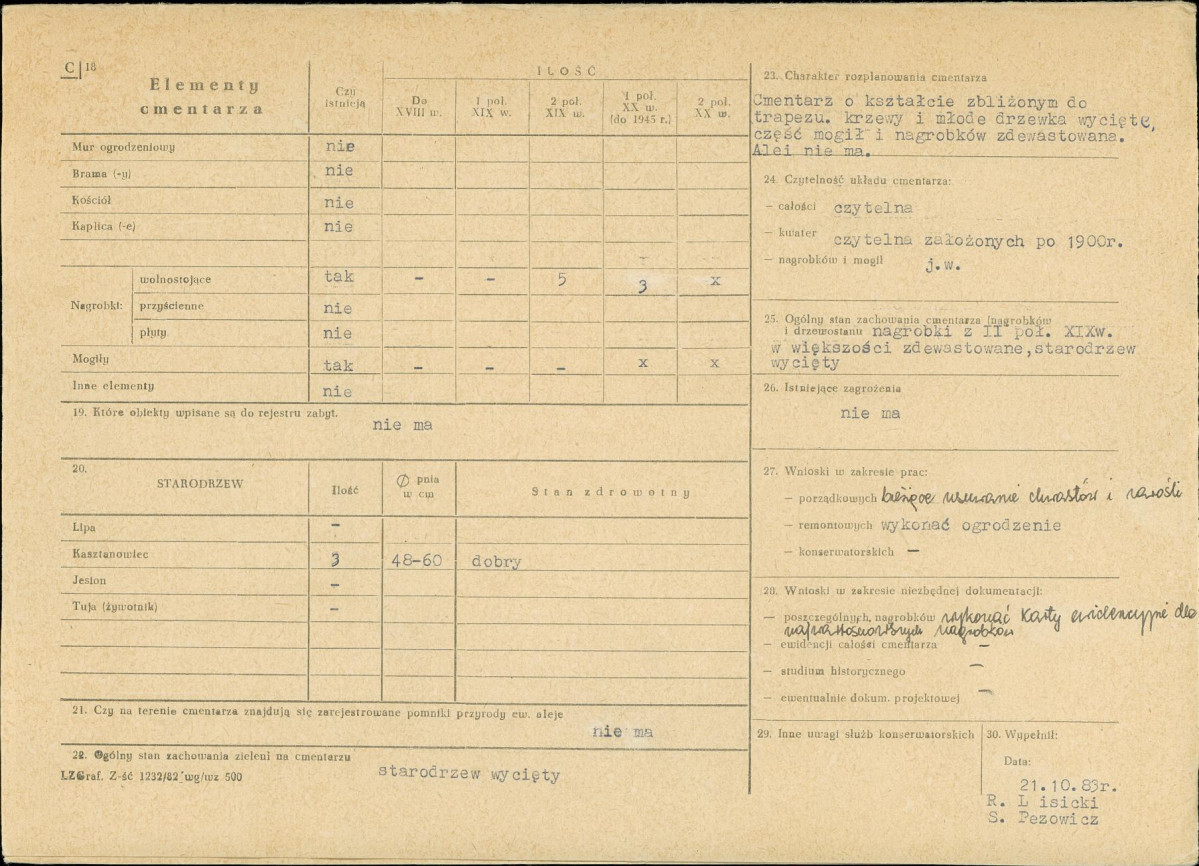 C 18
Elementy cmentarza | Czy istnieją | IŁOŚĆ
Do XVIII w. | 1 poł. XIX w. | 2 poł. XIX w. | 1 poł. XX w. (do 1945 r.) | 2 poł. XX w.
Mur ogrodzeniowy nie
Brama (-y) nie
Kościół nie
Kaplica (-e) nie
Nagrobki: wolnostojące tak – – 5 3 x
przyścienne nie
płyty nie
Mogiły tak – – – x x
Inne elementy nie
19. Które obiekty wpisane są do rejestru zabyt.
nie ma
20. STARODRZEW | Ilość | Ø pnia w cm | Stan zdrowotny
Lipa –
Kasztanowiec 3 48-60 dobry
Jesion –
Tuja (żywotnik) –
21. Czy na terenie cmentarza znajdują się zarejestrowane pomniki przyrody ew. aleje
nie ma
22. Ogólny stan zachowania zieleni na cmentarzu
starodrzew wycięty
LZGraf. Z-ść 1232/82 wg/wz 500
23. Charakter rozplanowania cmentarza
Cmentarz o kształcie zbliżonym do
trapezu. krzewy i młode drzewka wycięte,
część mogił i nagrobków zdewastowana.
Alei nie ma.
24. Czytelność układu cmentarza:
– całości czytelna
– kwater czytelna założonych po 1900r.
– nagrobków i mogił j.w.
25. Ogólny stan zachowania cmentarza (nagrobków
i drzewostanu nagrobki z II poł. XIXw.
w większości zdewastowane,starodrzew
wycięty
26. Istniejące zagrożenia
nie ma
27. Wnioski w zakresie prac:
– porządkowych bieżące usuwanie chwastów i zarośli
– remontowych wykonać ogrodzenie
– konserwatorskich –
28. Wnioski w zakresie niezbędnej dokumentacji:
– poszczególnych nagrobków wykonać karty ewidencyjne dla
najwartościowszych nagrobków
– ewidencji całości cmentarza –
– studium historycznego –
– ewentualnie dokum. projektowej –
29. Inne uwagi służb konserwatorskich
30. Wypełnił:
Data:
21.10.83r.
R. L isicki
S. Pezowicz